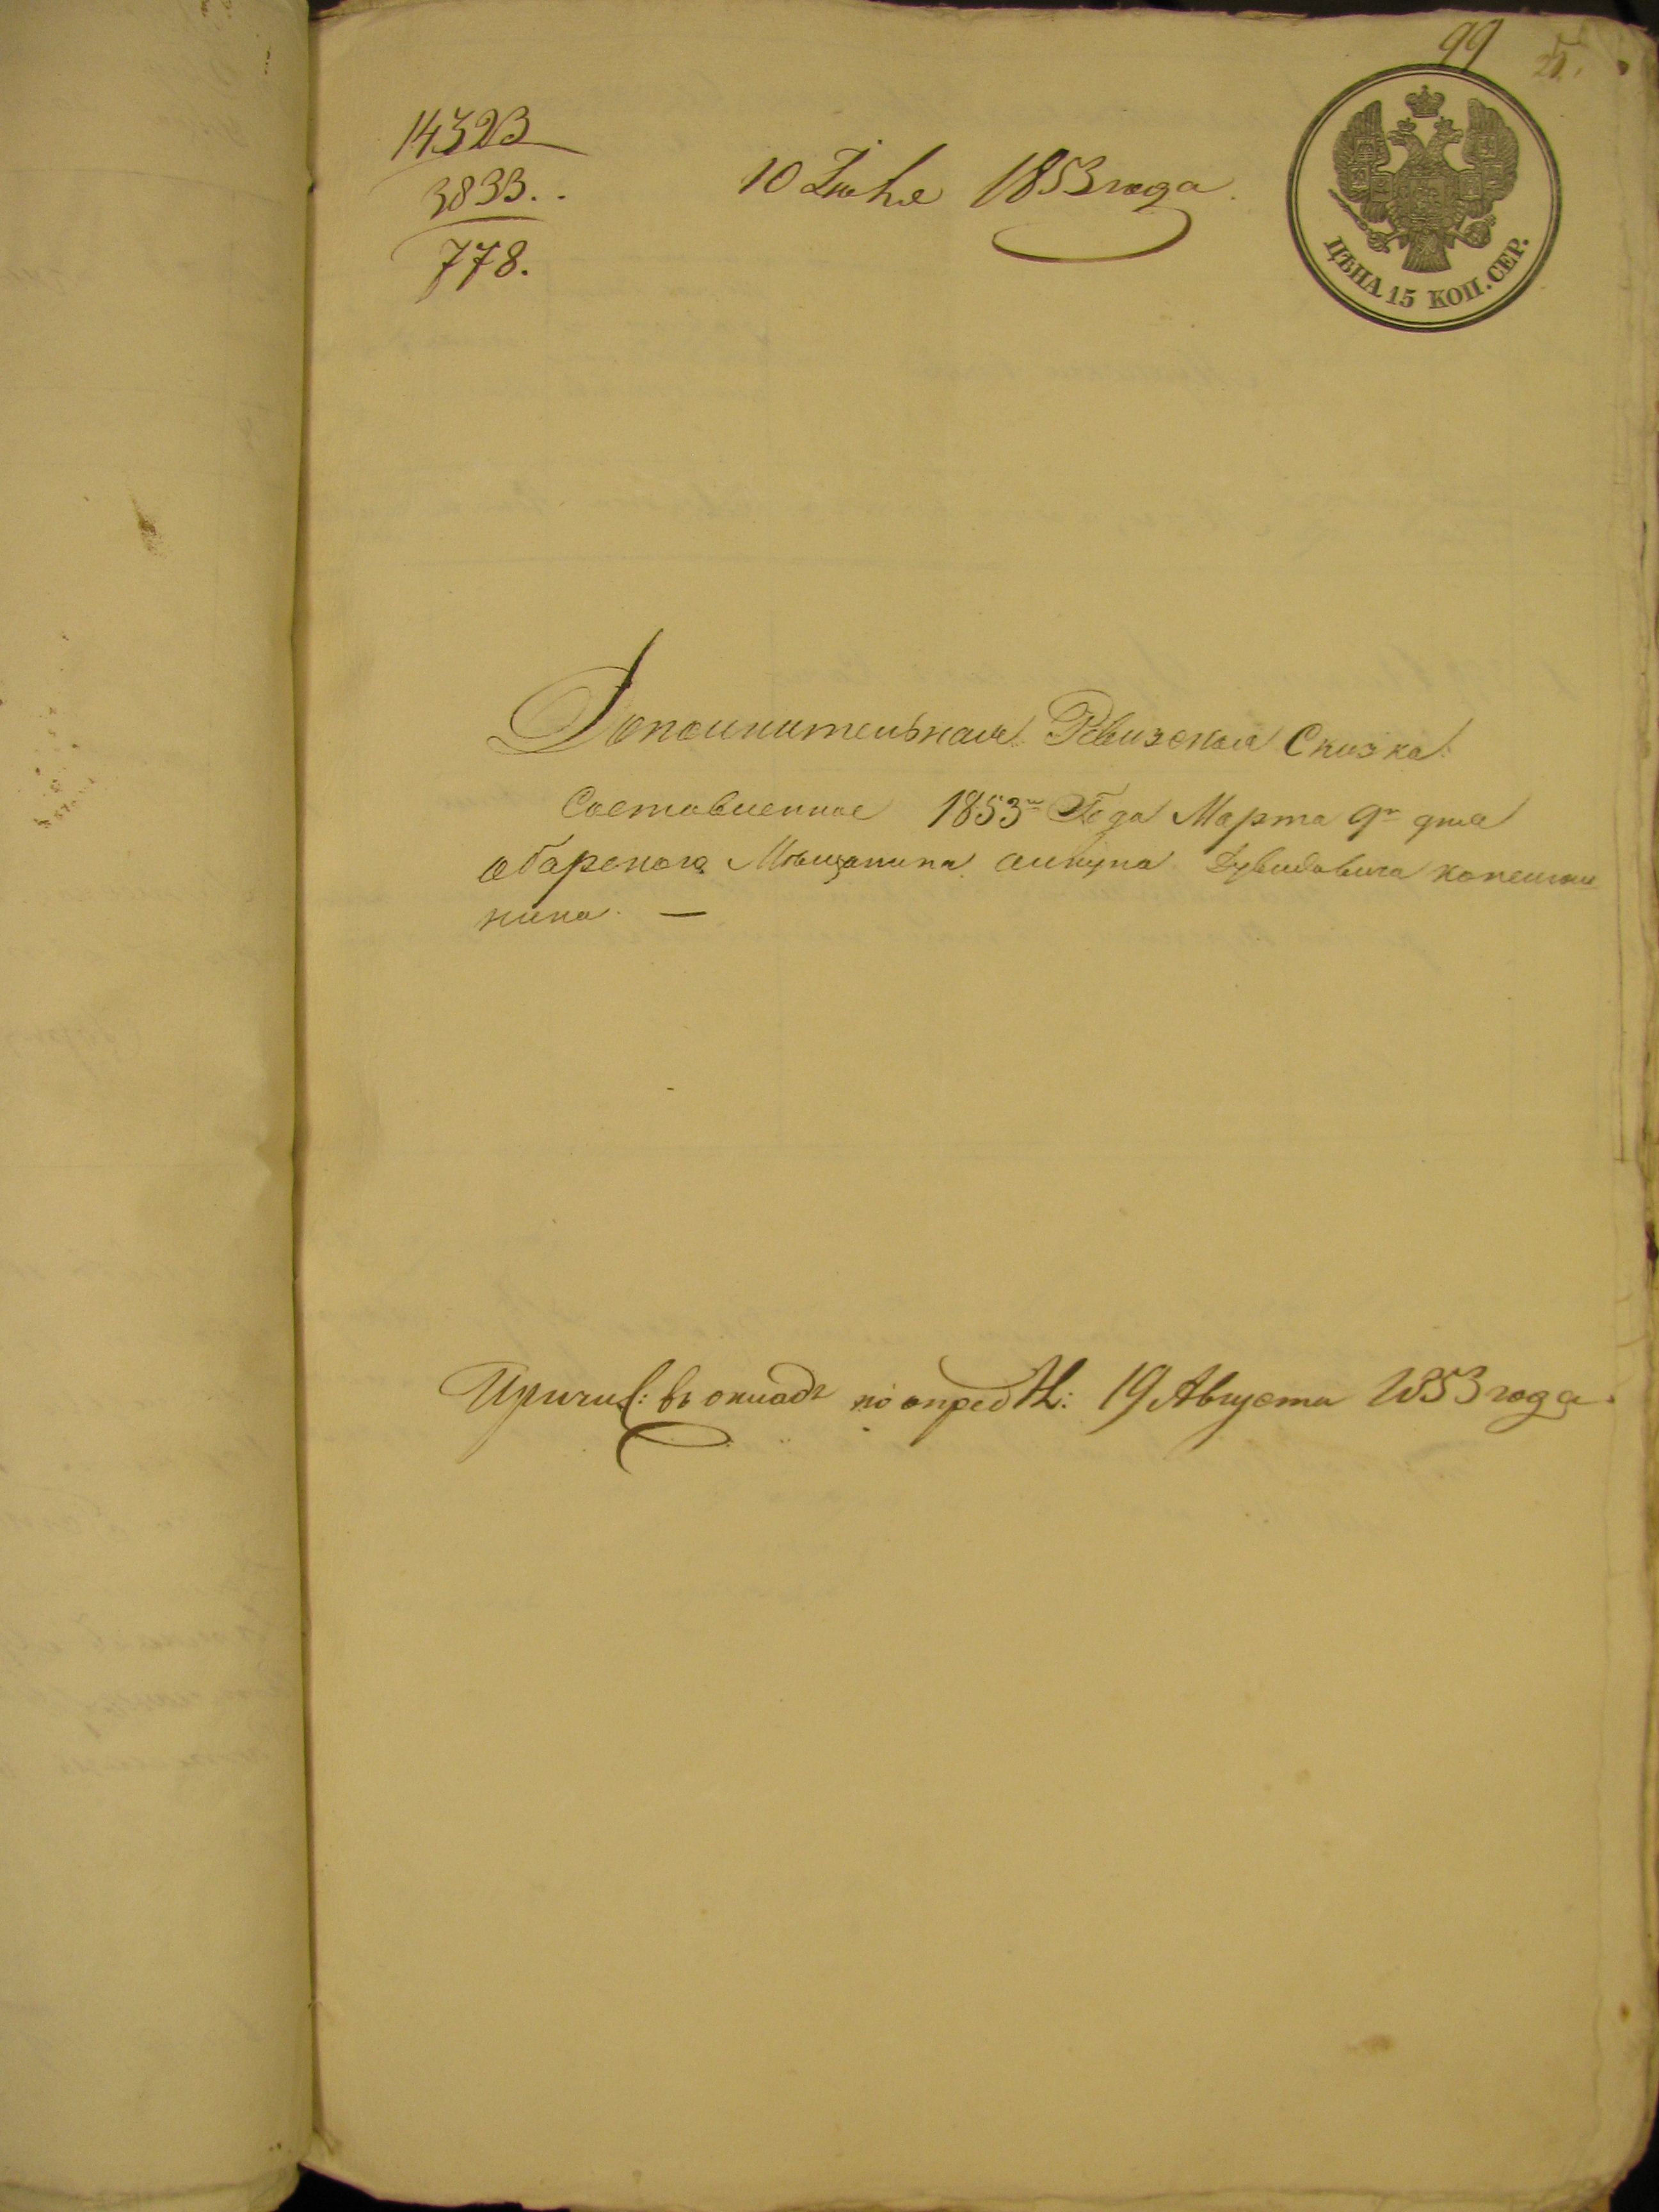 99
25.
14323
3833..
778.
10 Іюня 1853 года.
ЦѢНА 15 КОП. СЕР.
Дополнительная Ревизская Сказка.
Составленная 1853го Года Марта 9го дня
Мѣщанина
нина. —
Причис: въ окладъ по опредѣл: 19 Августа 1853 года.